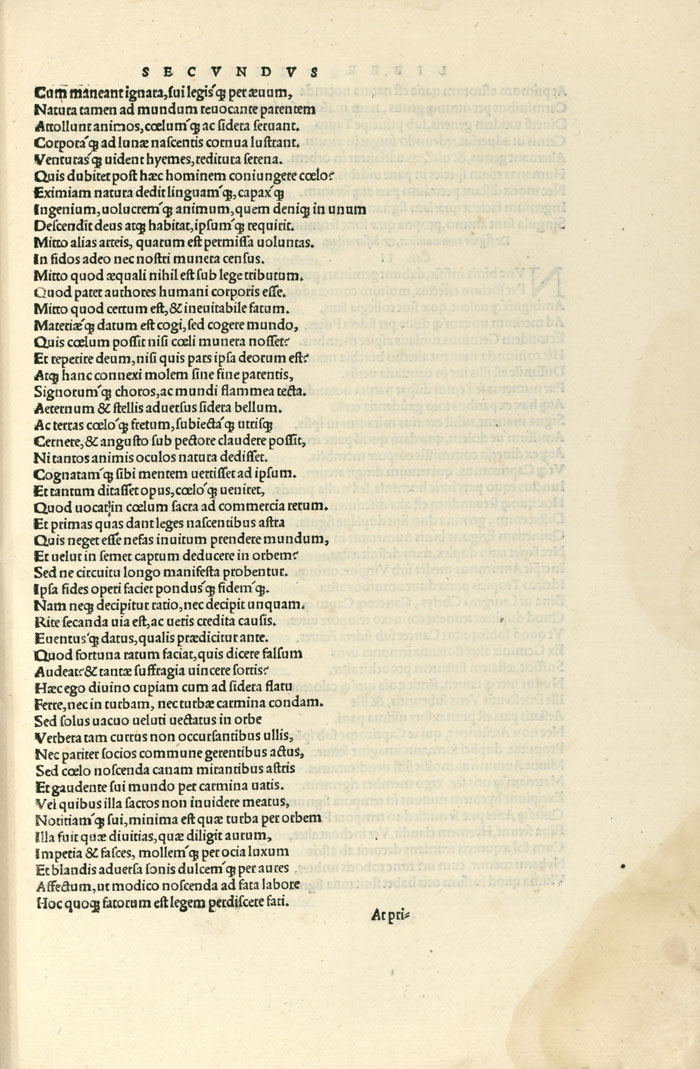 SECVNDVS
Cum maneant ignara, sui legisq; per æuum,
Natura tamen ad mundum reuocante parentem
Attollunt animos, cœlumq; ac sidera seruant.
Corporaq; ad lunæ nascentis cornua lustrant.
Venturasq; uident hyemes, reditura serena.
Quis dubitet post hæc hominem coniungere cœlo?
Eximiam natura dedit linguamq;, capaxq;
Ingenium, uolucremq; animum, quem deniq; in unum
Descendit deus atq; habitat, ipsumq; requirit.
Mitto alias arteis, quarum est permissa uoluntas.
In fidos adeo nec nostri munera census.
Mitto quod æquali nihil est sub lege tributum.
Quod patet authores humani corporis esse.
Mitto quod certum est, & ineuitabile fatum.
Materiæq; datum est cogi, sed cogere mundo,
Quis cœlum possit nisi cœli munera nosse?
Et reperire deum, nisi quis pars ipsa deorum est?
Atq; hanc connexi molem sine fine parentis,
Signorumq; choros, ac mundi flammea tecta.
Aeternum & stellis aduersus sidera bellum.
Ac terras cœloq; fretum, subiectaq; utrisq;
Cernere, & angusto sub pectore claudere possit,
Ni tantos animis oculos natura dedisset.
Cognatamq; sibi mentem uertisset ad ipsum.
Et tantum ditasset opus, cœloq; ueniret,
Quod uocat in cœlum sacra ad commercia rerum.
Et primas quas dant leges nascentibus astra
Quis neget esse nefas inuitum prendere mundum,
Et uelut in semet captum deducere in orbem?
Sed ne circuitu longo manifesta probentur.
Ipsa fides operi faciet pondusq; fidemq;.
Nam neq; decipitur ratio, nec decipit unquam.
Rite secanda uia est, ac ueris credita causis.
Euentusq; datus, qualis prædicitur ante.
Quod fortuna ratum faciat, quis dicere falsum
Audeat? & tantæ suffragia uincere sortis?
Hæc ego diuino cupiam cum ad sidera flatu
Ferre, nec in turbam, nec turbæ carmina condam.
Sed solus uacuo ueluti uectatus in orbe
Verbera tam currus non occursantibus ullis,
Nec pariter socios commune gerentibus actus,
Sed cœlo noscenda canam mirantibus astris
Et gaudente sui mundo per carmina uatis.
Vel quibus illa sacros non inuidere meatus,
Notitiamq; sui, minima est quæ turba per orbem
Illa fuit quæ diuitias, quæ diligit aurum,
Imperia & fasces, mollemq; per ocia luxum
Et blandis aduersa sonis dulcemq; per aures
Affectum, ut modico noscenda ad fata labore
Hoc quoq; fatorum est legem perdiscere fati.
At pri=